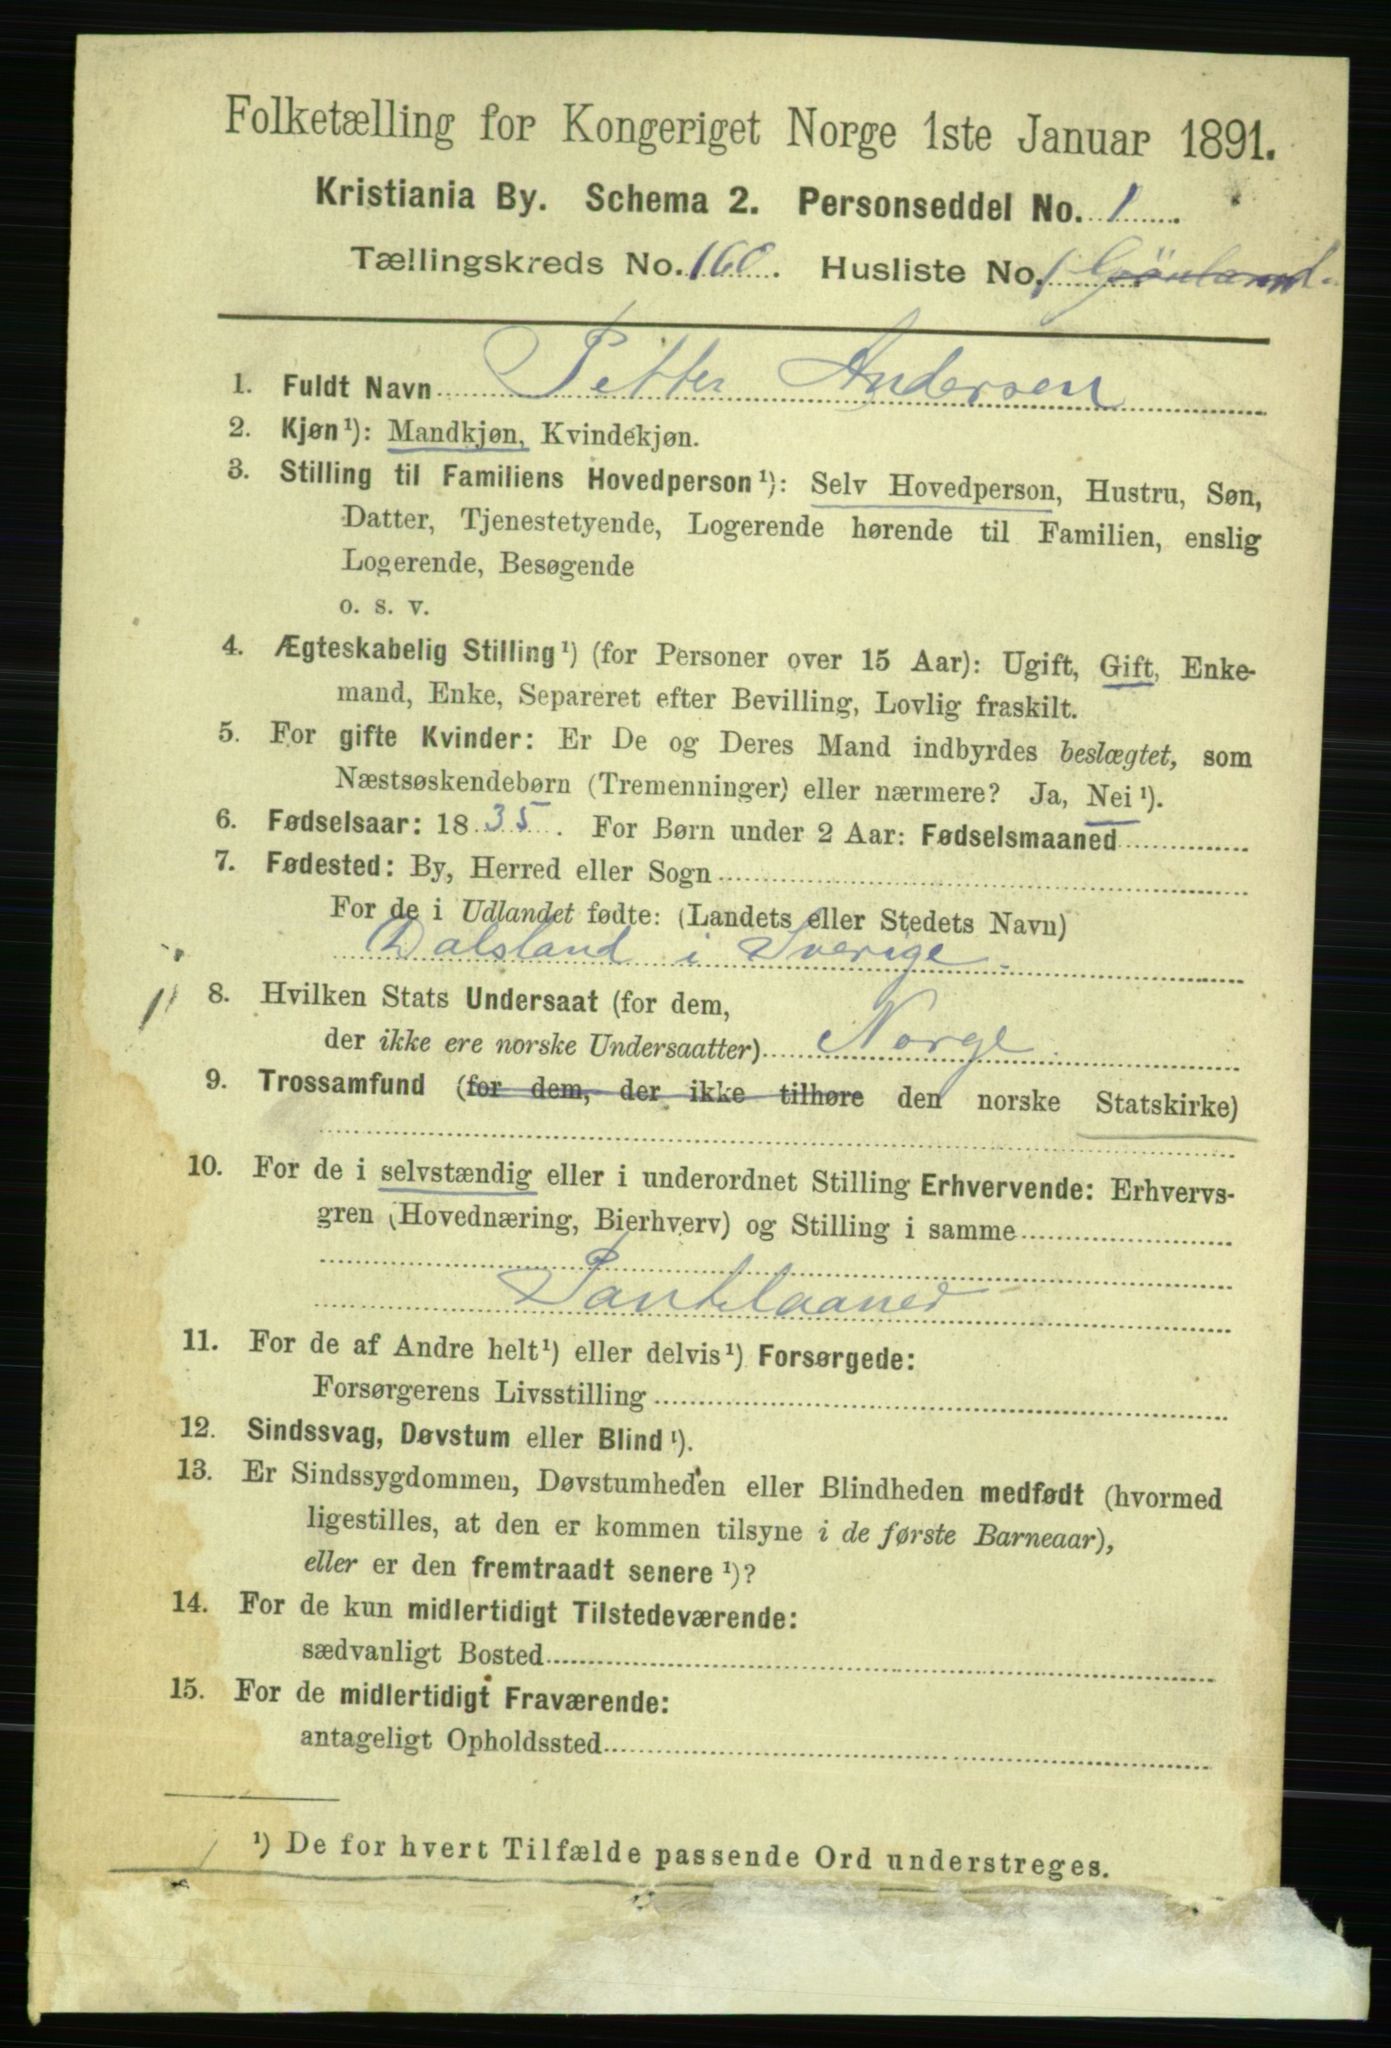 Folketælling for Kongeriget Norge 1ste Januar 1891.
Kristiania By. Schema 2. Personseddel No. 1
Tællingskreds No. 160. Husliste No. 1 Grönland.
1. Fuldt Navn Petter Andersen
2. Kjøn¹): Mandkjøn, Kvindekjøn.
3. Stilling til Familiens Hovedperson¹): Selv Hovedperson, Hustru, Søn,
Datter, Tjenestetyende, Logerende hørende til Familien, enslig
Logerende, Besøgende
o. s. v.
4. Ægteskabelig Stilling¹) (for Personer over 15 Aar): Ugift, Gift, Enke-
mand, Enke, Separeret efter Bevilling, Lovlig fraskilt.
5. For gifte Kvinder: Er De og Deres Mand indbyrdes beslægtet, som
Næstsøskendebørn (Tremenninger) eller nærmere? Ja, Nei¹).
6. Fødselsaar: 1835. For Børn under 2 Aar: Fødselsmaaned
7. Fødested: By, Herred eller Sogn
For de i Udlandet fødte: (Landets eller Stedets Navn)
Dalsland i Sverige.
8. Hvilken Stats Undersaat (for dem,
der ikke ere norske Undersaatter) Norge.
9. Trossamfund (for dem, der ikke tilhøre den norske Statskirke)
10. For de i selvstændig eller i underordnet Stilling Erhvervende: Erhvervs-
gren (Hovednæring, Bierhverv) og Stilling i samme
Pantelaaner
11. For de af Andre helt¹) eller delvis¹) Forsørgede:
Forsørgerens Livsstilling
12. Sindssvag, Døvstum eller Blind¹).
13. Er Sindssygdommen, Døvstumheden eller Blindheden medfødt (hvormed
ligestilles, at den er kommen tilsyne i de første Barneaar),
eller er den fremtraadt senere¹)?
14. For de kun midlertidigt Tilstedeværende:
sædvanligt Bosted
15. For de midlertidigt Fraværende:
antageligt Opholdssted
¹) De for hvert Tilfælde passende Ord understreges.